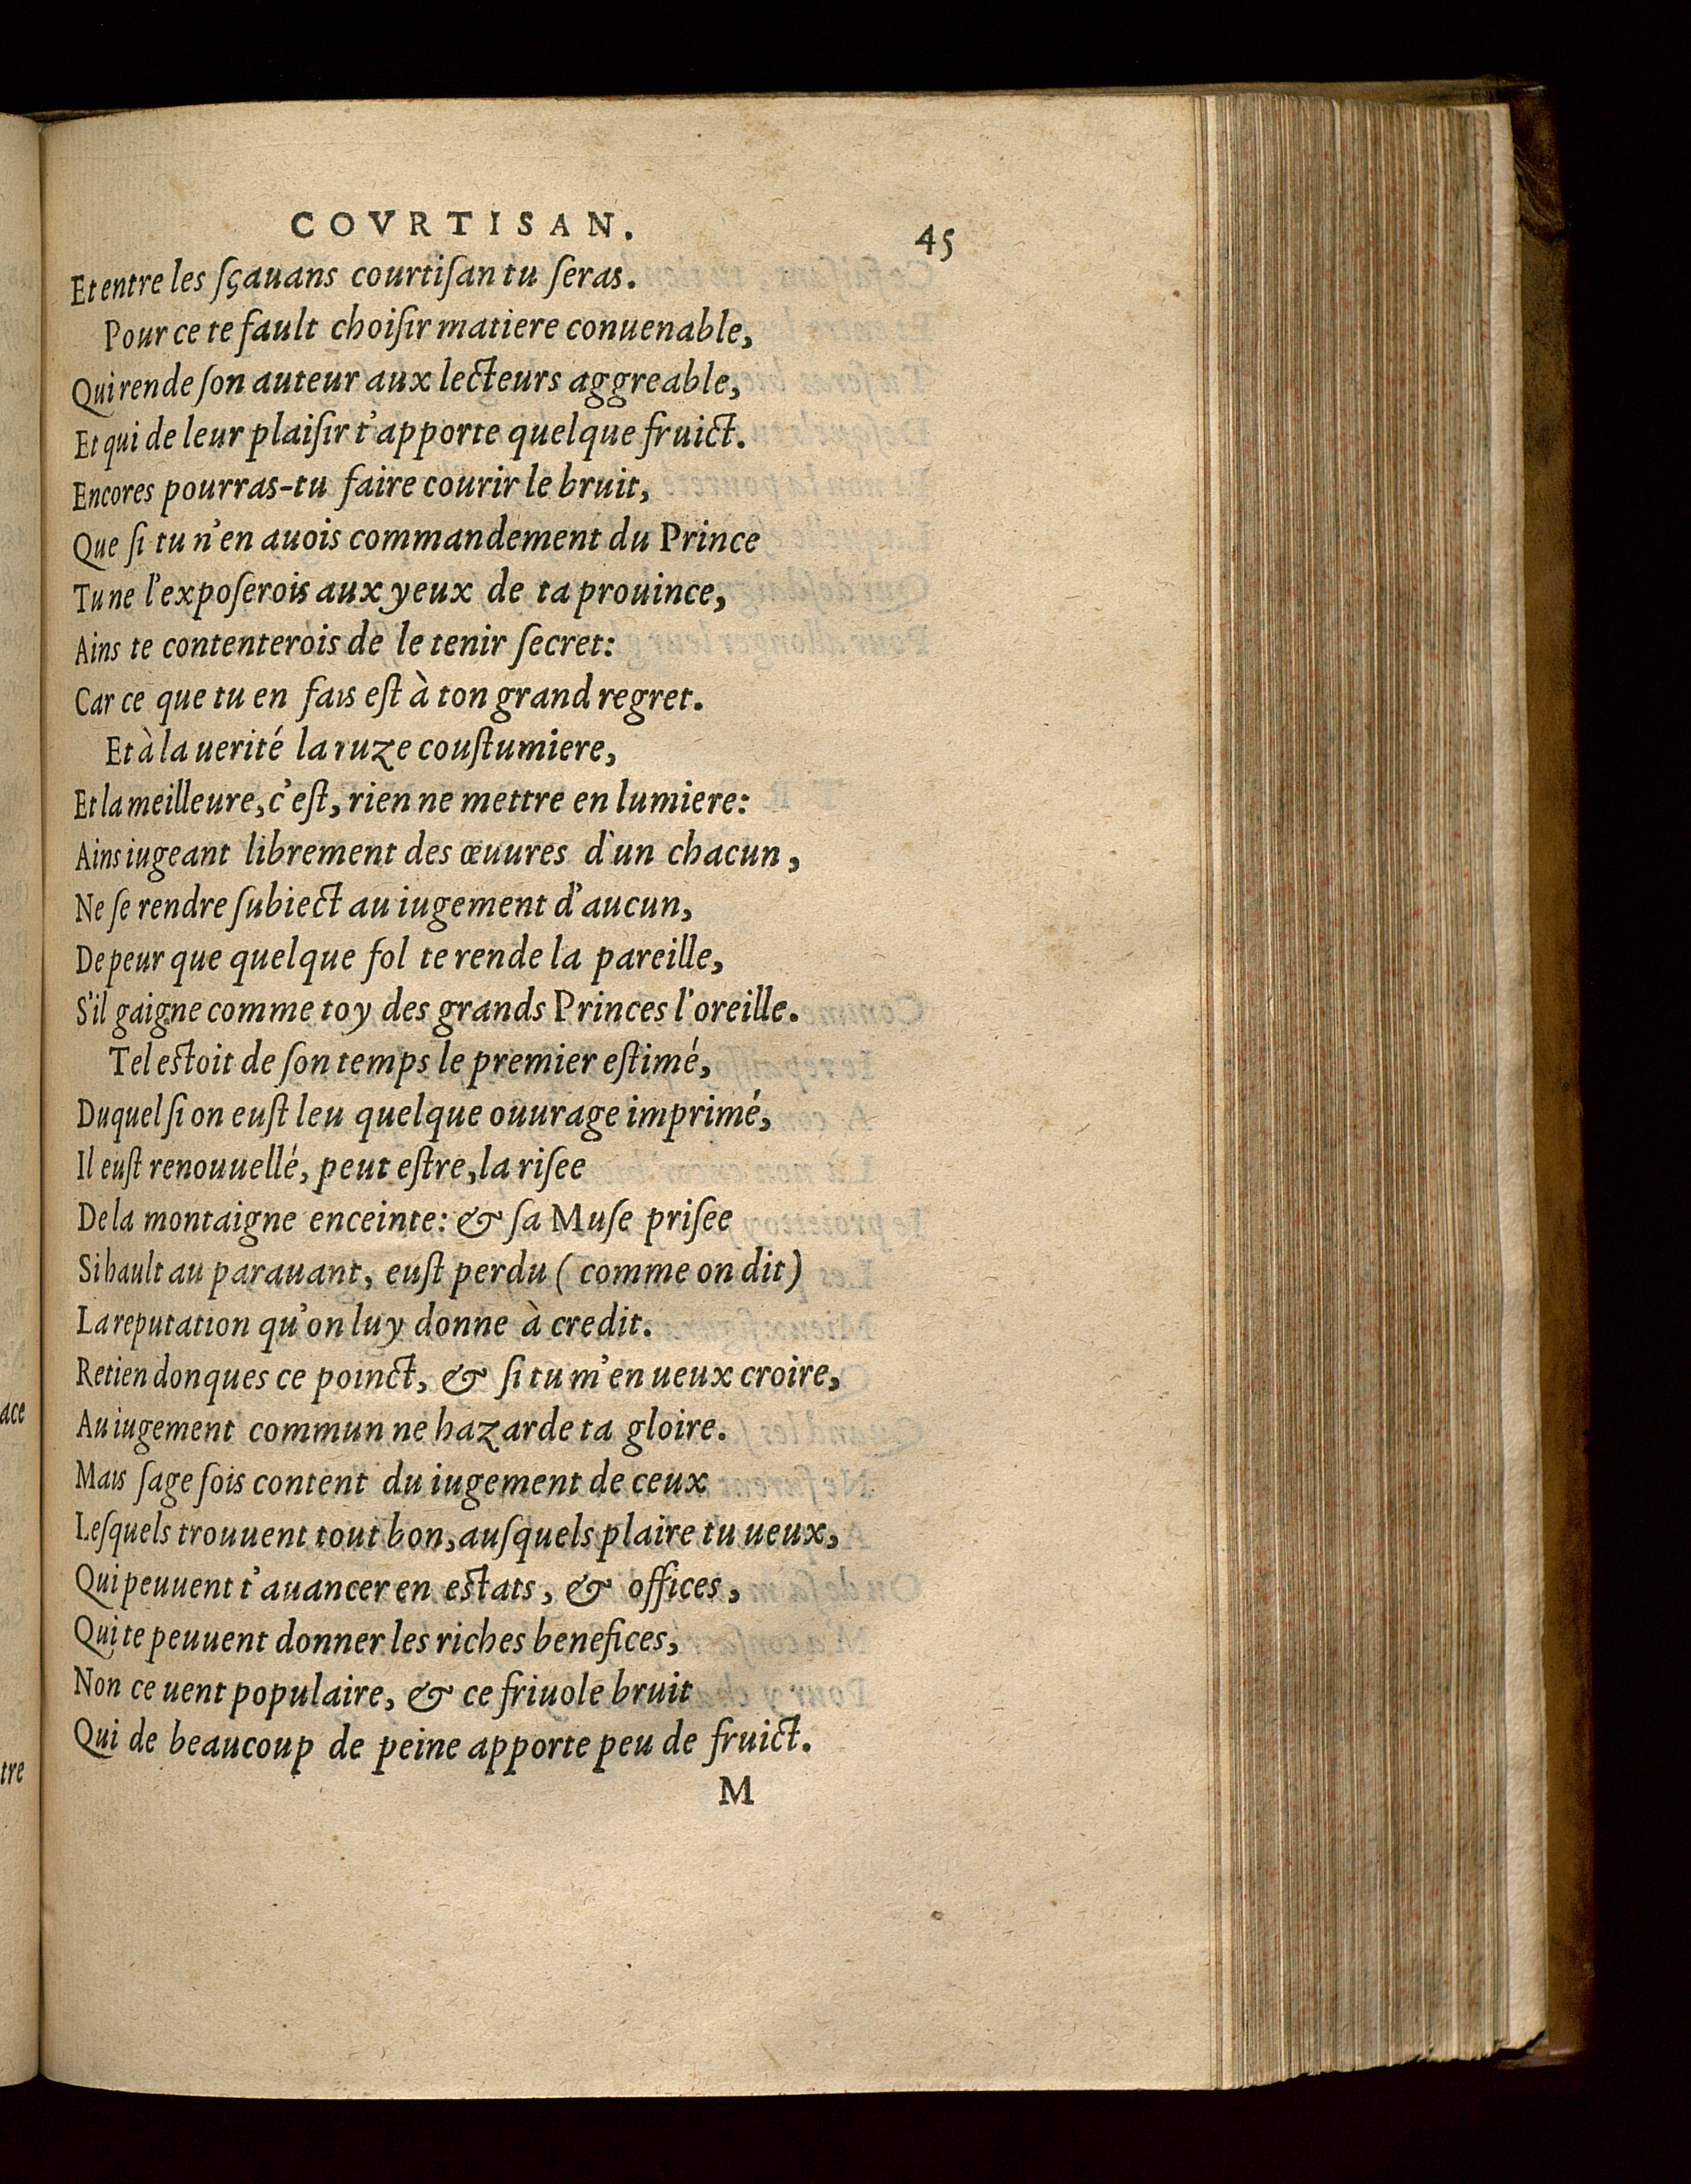 COVRTISAN.
45
Et entre les sçauans courtiſan tu ſeras.
Pour ce te fault choiſir matiere conuenable,
Qui rende ſon auteur aux lecteurs aggreable,
Et qui de leur plaiſir t'apporte quelque fruict.
Encores pourras-tu faire courir le bruit,
Que ſi tu n'en auois commandement du Prince
Tu ne l'expoſerois aux yeux de ta prouince,
Ains te contenterois de le tenir ſecret:
Car ce que tu en fais eſt à ton grand regret.
Et à la uerité la ruze couſtumiere,
Et la meilleure, c'eſt, rien ne mettre en lumiere:
Ains iugeant librement des œuures d'un chacun,
Ne ſe rendre ſubiect au iugement d'aucun,
De peur que quelque fol te rende la pareille,
S'il gaigne comme toy des grands Princes l'oreille.
Tel eſtoit de ſon temps le premier eſtimé,
Duquel ſi on euſt leu quelque ouurage imprimé,
Il euſt renouuellé, peut eſtre, la riſee
De la montaigne enceinte: & ſa Muſe priſee
Si hault au parauant, euſt perdu (comme on dit)
La reputation qu'on luy donne à credit.
Retien donques ce poinct, & ſi tu m'en ueux croire,
Au iugement commun ne hazarde ta gloire.
Mais ſage ſois content du iugement de ceux
Leſquels trouuent tout bon, auſquels plaire tu ueux,
Qui peuuent t'auancer en eſtats, & offices,
Qui te peuuent donner les riches benefices,
Non ce uent populaire, & ce friuole bruit
Qui de beaucoup de peine apporte peu de fruict.
M
ace
tre